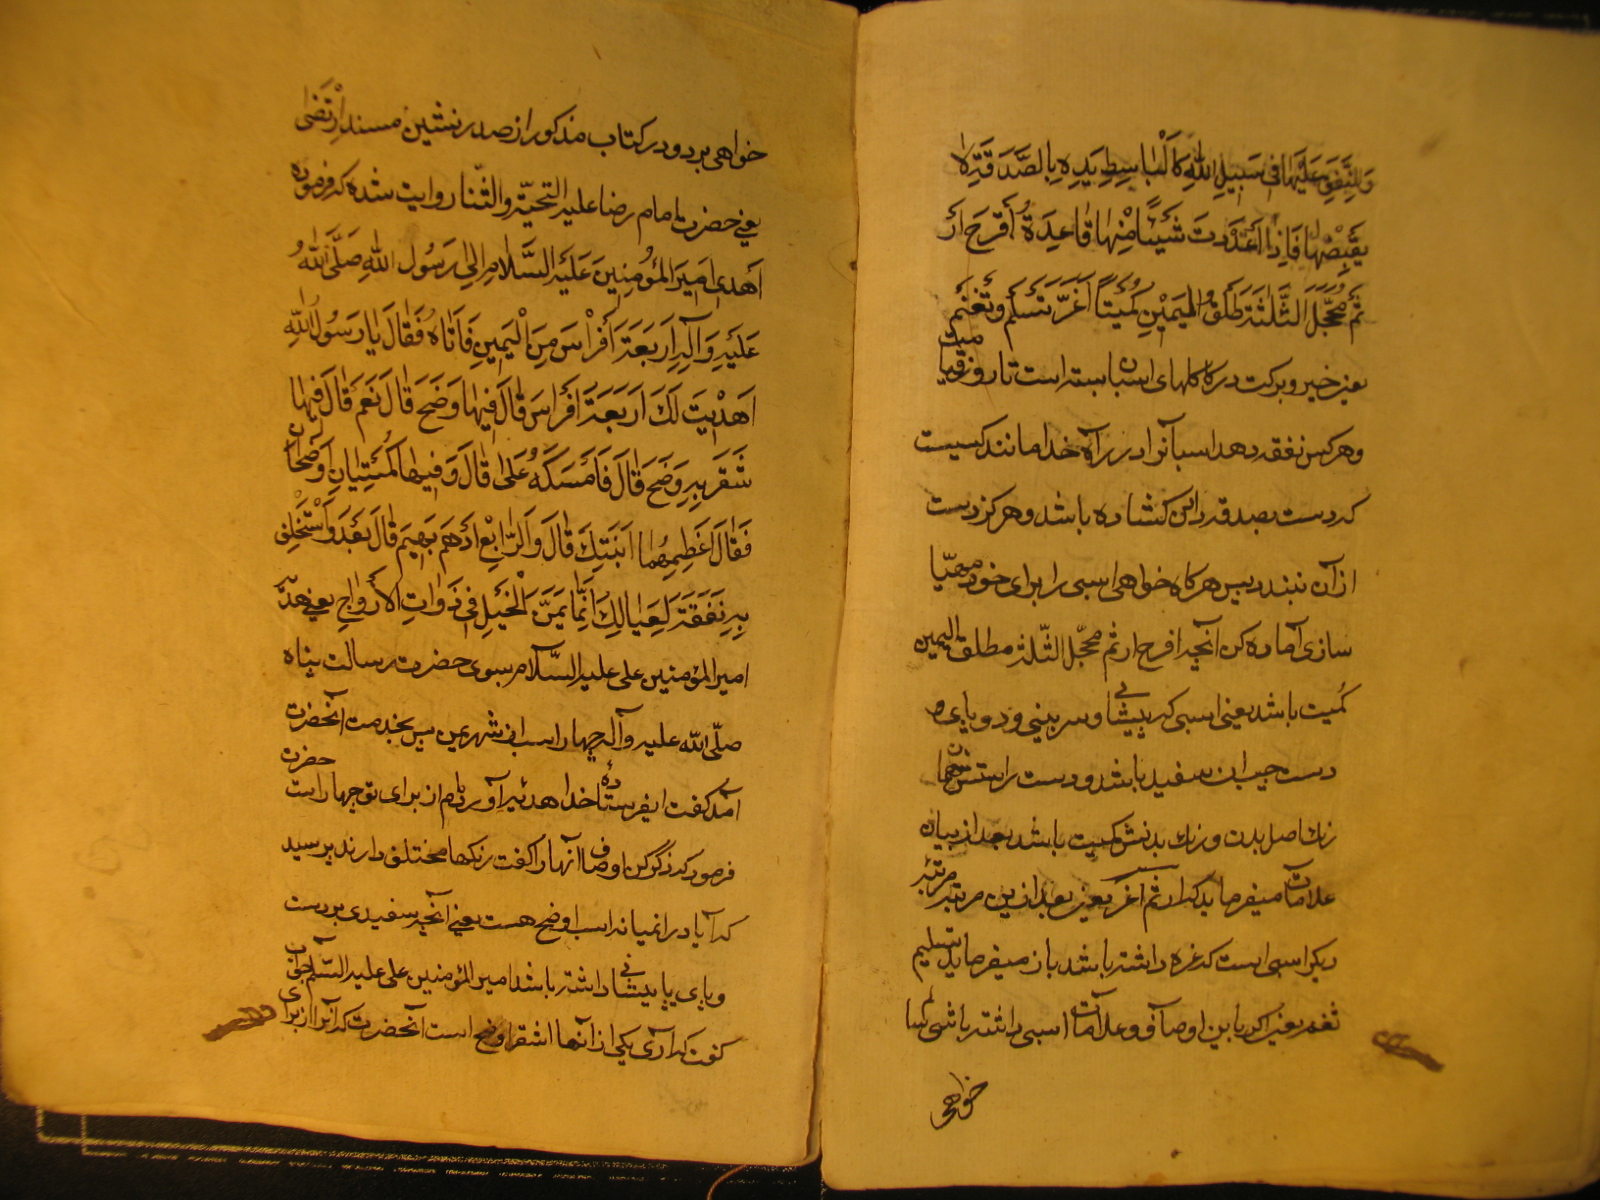 وَالمُنْفِقُ عَلَيْهَا فِى سَبِيلِ اللّٰهِ كَالْبَاسِطِ يَدِهِ بِالصَّدَقَةِ لَا
يَقْبِضُهَا فَاِذَا اَعْدَدْتَ شَيْئًا مِنْهَا فَاعِدَهُ اَقْرَحَ اَرْ
ثَمَ مُحَجَّلَ الثَّلٰثَةِ طَلْقَ الْيَمِيْنِ كُمَيْتًا اَغَرَّ تَسْلَمْ وَتَغْنَمْ
يعنى خير و بركت در كاكلهاى اسپان بسته است تا روز قيامت
و هر كس نفقه دهد اسبانرا در راه خدا مانند كسيست
كه دست بصدقه دادن كشاده باشد و هركز دست
از آن نبندد پس هركاه خواهى اسبى را براى خود مهيّا
سازى آماده كن آنچه اقرح ارثم محجّل الثّلثة مطلق اليمين
كُميت باشد يعنى اسبى كه پيشانى و سر بينى و دو پاى و
دست چپ ان سفيد باشد و دست راستش همان
رنك اصل بدن و رنك بدنش كميت باشد بعد از بيان
علامات ميفرمايد كه ثم اغر يعنى بعد ازين مرتبه مرتبه
ديكر اسبى است كه غره داشته باشد باز ميفرمايد تسلم
تغنم يعنى اكر باين اوصاف و علامات اسبى داشته باشى سالم
خواهى
خواهى بود و در كتاب مذكور از صدر نشين مسند اِرْتَضٰى
يعنى حضرت امام رضا عليه التحيّة والثّنا روايت شده كه فرموده
اَهْدٰى اَمِيرَ المُؤْمِنِينَ عَلَيْهِ السَّلَامُ اِلىٰ رَسُولِ اللّٰهِ صَلَّى اللّٰهُ
عَلَيْهِ وَآلِهِ اَرْبَعَةَ اَفْرَاسَ مِنَ الْيَمِينِ فَاَتَاهُ فَقَالَ يَا رَسُولَ اللّٰهِ
اَهْدَيْتُ لَكَ اَرْبَعَةَ اَفْرَاسَ قَالَ فِيهَا وَضَحَ قَالَ نَعَمْ قَالَ فِيهَا
شَقَرَ بِهِ وَضَحَ قَالَ فَاَمْسِكْهُ عَلَىَّ قَالَ وَفِيهَا كُمَيْتَانِ اَوْضَحَانِ
فَقَالَ اَعْطِهِمَا اِبْنَيْكَ قَالَ وَالرَّابِعُ اَدْهَمَ بَهِيمَ قَالَ بِعْهُ وَاسْتَخْلِفْ
بِهِ نَفَقَةَ لِعِيَالِكَ اِنَّمَا يُمْنُ الْخَيْلِ فِى ذَوَاتِ الْاَوْضَاحِ يعنى هديّه
امير المؤمنين على عليه السّلام بسوى حضرت رسالت پناه
صلّى اللّه عليه وآله چهار اسب از شهر يمن پس بخدمت آنحضرت
آمد كفت اى فرستاده خدا هديه آورده‌ام از براى تو چهار است حضرت
فرمود كه ذكر كن اوصاف آنها را كفت رنكها مختلف دارند پرسيد
كه آيا در انميانه اسب اوضح هست يعنى آنچه سفيدى بر دست
و پاى يا پيشانى داشته باشد امير المؤمنين على عليه السّلم جواب
كفت كه آرى يكى از آنها اشقر اوضح است آنحضرت كه آنرا از براى